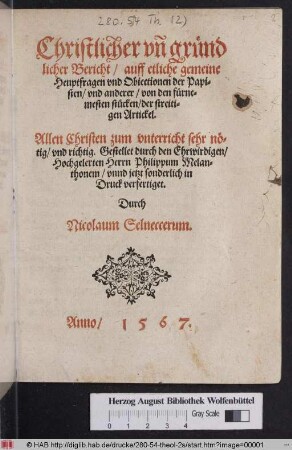 280. 54 Th. (2)
Christlicher vn̄ gründ
licher Bericht / auff etliche gemeine
Heuptfragen vnd Obiectionen der Papi-
sten / vnd anderer / von den fürne-
mesten stücken / der streiti-
gen Artickel.
Allen Christen zum vnterricht sehr nö-
tig / vnd richtig. Gestellet durch den Ehrwirdigen /
Hochgelerten Herrn Philippum Melan-
thonem / vnnd jetzt sonderlich in
Druck verfertiget.
Durch
Nicolaum Selneccerum.
Anno / 1567.
Herzog August Bibliothek Wolfenbüttel
Gray Scale
© HAB http://diglib.hab.de/drucke/280-54-theol-2s/start.htm?image=00001